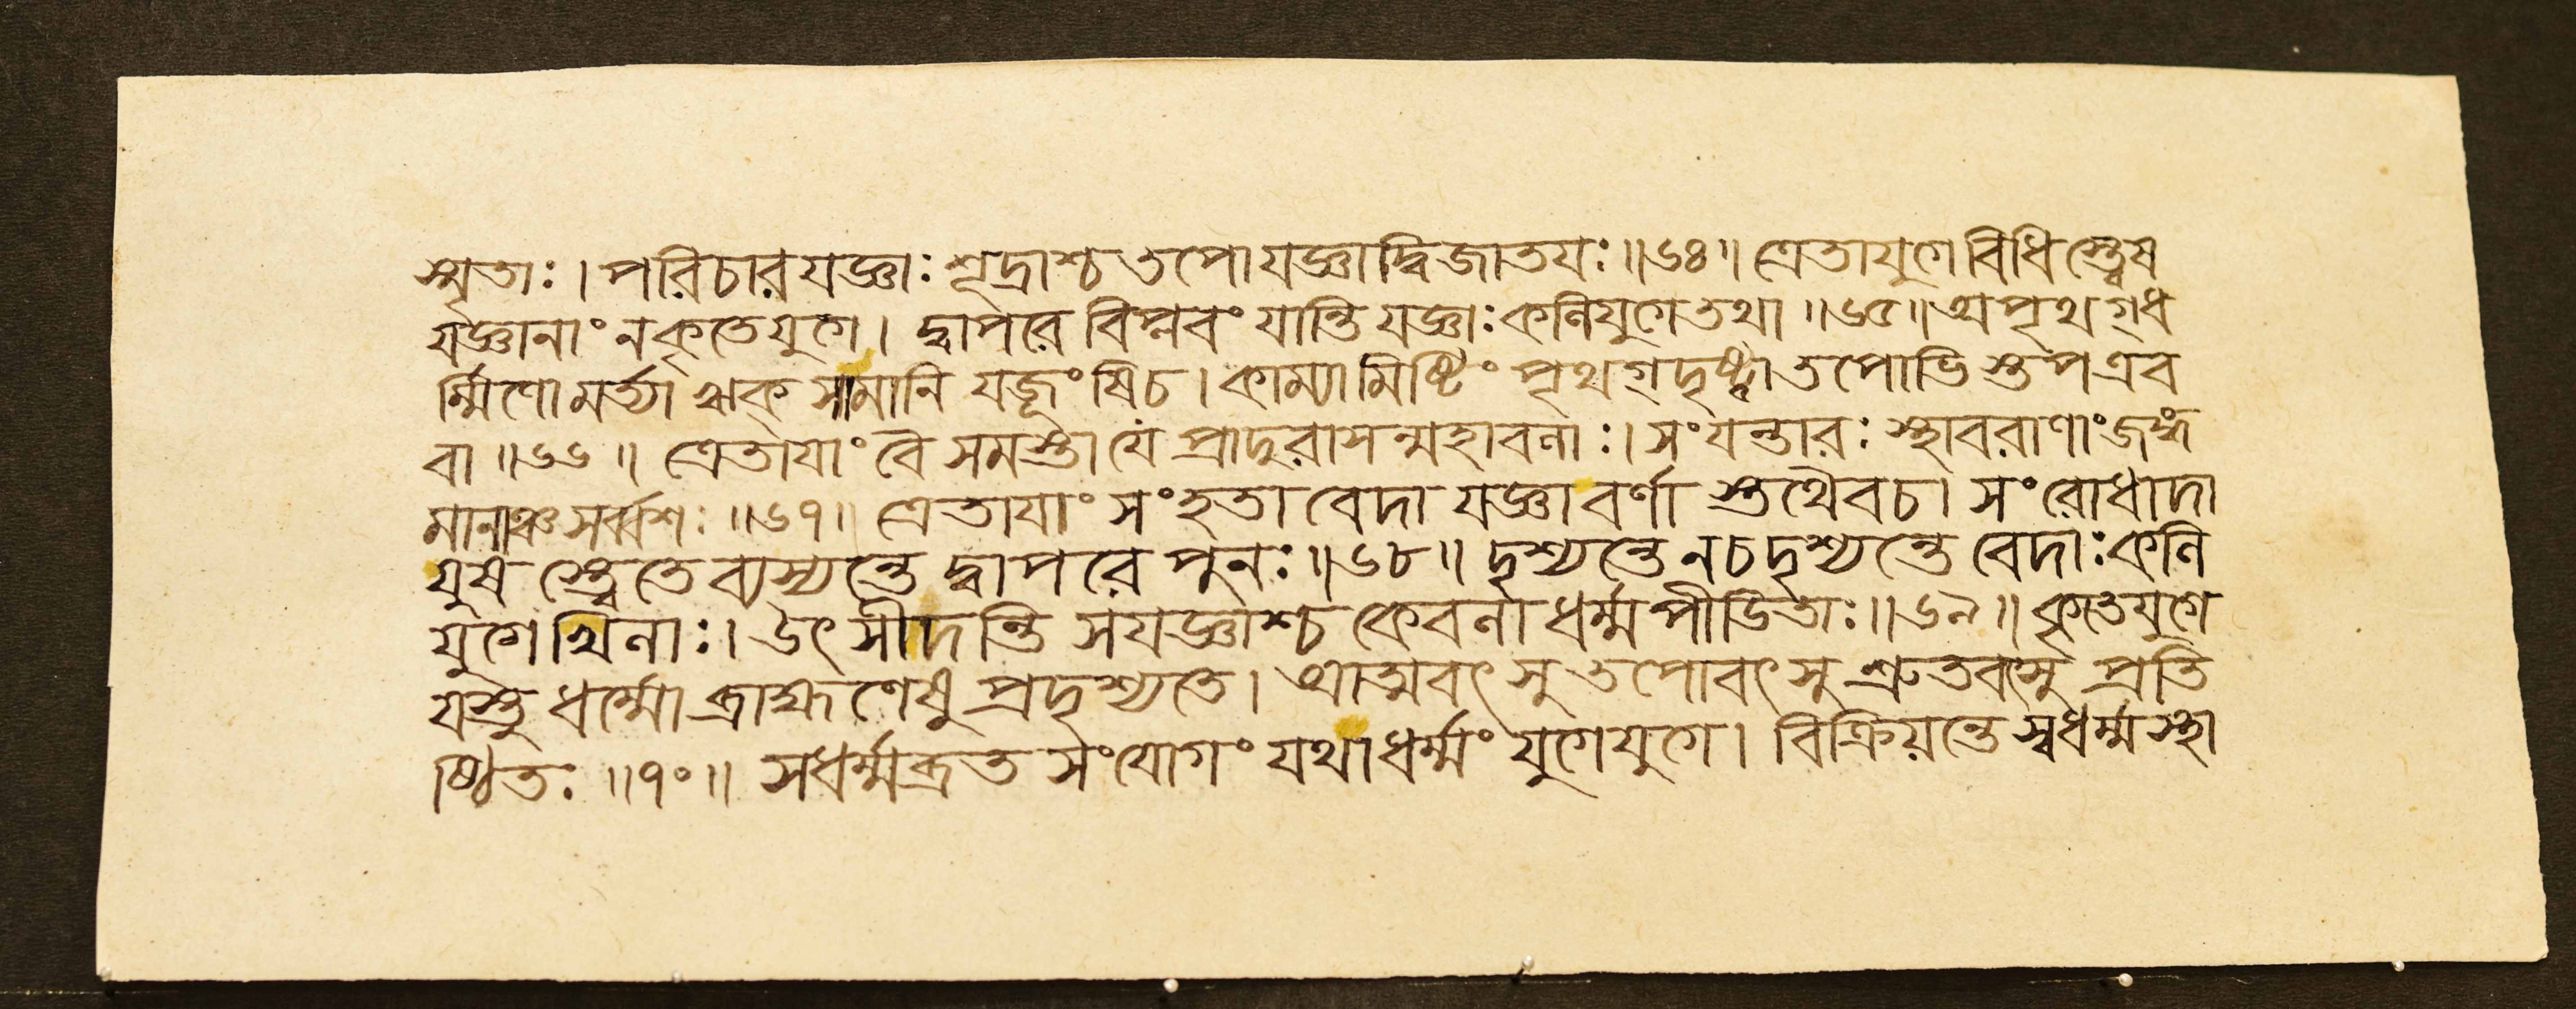 স্মৃতাঃ। পরিচারযজ্ঞাঃ শূদ্রাশ্চ তপোযজ্ঞাদ্বিজাতযঃ॥৬৪॥ ত্রেতাযুগে বিধিস্ত্বেষ
যজ্ঞানাং নকৃতেযুগে। দ্বাপরে বিপ্লবং যান্তি যজ্ঞাঃ কলিযুগেতথা॥৬৫॥ অপৃথগ্ধ
র্ম্মিণোমর্ত্যা ঋক্ সামানি যজূংষিচ। কাম্যামিষ্টিং পৃথগ্‌দৃষ্ট্বা তপোভিস্তপএব
বা॥৬৬॥ ত্রেতাযাং বৈ সমস্তা যে প্রাদুরাসন্মহাবলাঃ। সংযন্তারঃ স্থাবরাণাং জঙ্গ
মানাঞ্চ সর্ব্বশঃ॥৬৭॥ ত্রেতাযাং সংহতা বেদা যজ্ঞাবর্ণা স্তথৈবচ। সংরোধাদা
যুষ স্ত্বেতে ব্যস্যন্তে দ্বাপরে পুনঃ॥৬৮॥ দৃশ্যন্তে নচদৃশ্যন্তে বেদাঃ কলি
যুগেখিলাঃ। উৎসীদন্তি সযজ্ঞাশ্চ কেবলাধর্ম্মপীডিতাঃ॥৬৯॥ কৃতেযুগে
যস্তু ধর্ম্মো ব্রাহ্মণেষু প্রদৃশ্যতে। আত্মবৎসু তপোবৎসু শ্রুতবৎসু প্রতি
ষ্ঠিতঃ॥৭০॥ সধর্ম্মব্রত সংযোগং যথাধর্ম্মং যুগেযুগে। বিক্রিয়ন্তে স্বধর্ম্মস্থা